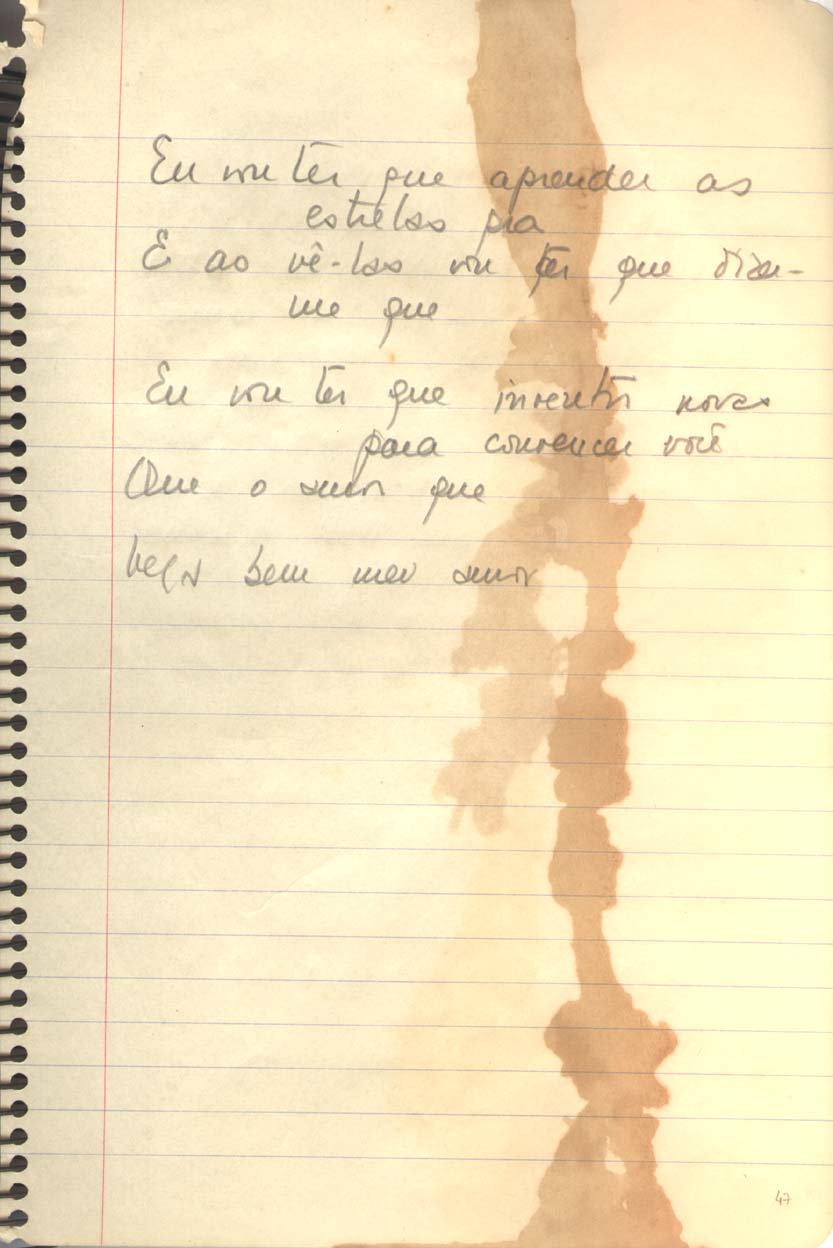 Eu vou ter que aprender as
estrelas pra
E ao vê-las vou ter que dizer-
me que
Eu vou ter que inventar novas
para convencer você
Que o amor que
Veja bem meu amor
47